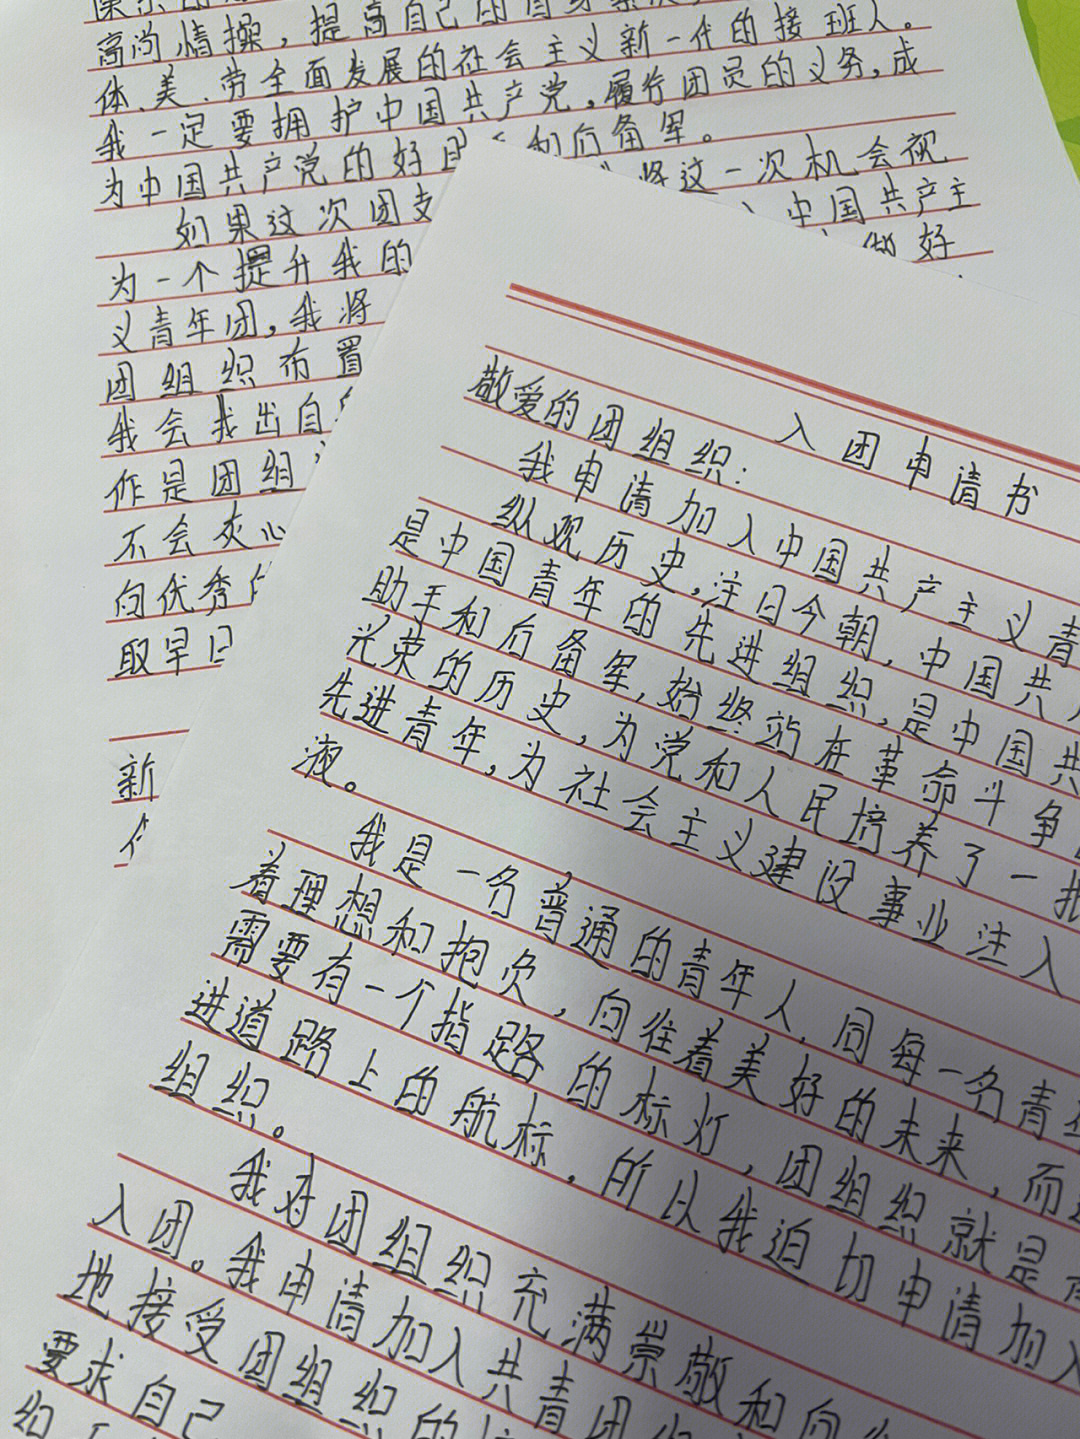 高尚情操，提高自己的自身
体、美、劳全面发展的社会主义新一代的接班人。
我一定要拥护中国共产党，履行团员的义务，成
为中国共产党的好 和后备军。
如果这次团支 将这一次机会视
为一个提升我的 中国共产主
义青年团，我将 做好
团组织布置
我会找出自
作是团组
不会灰心
向优秀
取早日
新
入团申请书
敬爱的团组织：
我申请加入中国共产主义青
纵观历史，注日今朝，中国共
是中国青年的先进组织，是中国共
助手和后备军，始终站在革命斗争
光荣的历史，为党和人民培养了一批
先进青年，为社会主义建设事业注入
液。
我是一名普通的青年人，同每一名青年
着理想和抱负，向往着美好的未来，而
需要有一个指路的标灯，团组织就是
进道路上的航标，所以我迫切申请加入
组织。
我对团组织充满崇敬和向往
入团。我申请加入共青团
地接受团组织的
要求自己